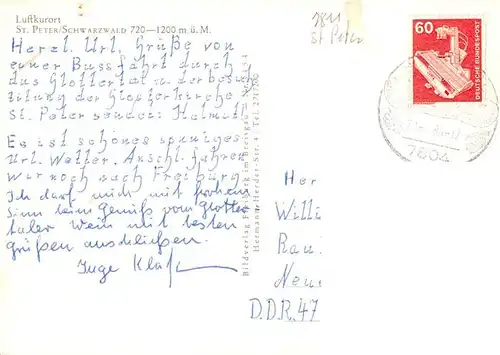 Luftkurort
ST. PETER/SCHWARZWALD 720—1200 m ü. M.
Herzl. Url. Grüße von
einer Bussfahrt durch
das Glottertal u der besich
tigung der Klosterkirche
St. Peter sendet: Helmut
Es ist schönes sonniges
Url. Wetter. Anschl. fahren
wir noch nach Freiburg
Ich darf mich mit frohem
Sinn beim Genuß vom Glotter
taler Wein mit besten
grüßen anschließen.
Inge
Bildverlag Freiburg im Breisgau
Hermann-Herder-Str. 4
St. Peter
60
DEUTSCHE BUNDESPOST
Her
Willi
Rau.
Neu
D.D.R. 47